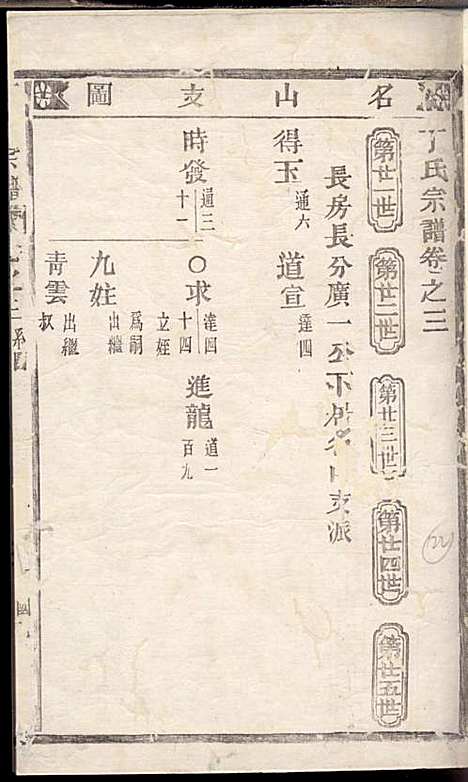 名山支圖
丁氏宗譜卷之三
第廿一世
第廿二世
第廿三世
第廿四世
第廿五世
長房長分廣一公下居名山支派
得玉 通六 道宣 達四
時發 通三十一 ○求 達四十四 立姪為嗣 進龍 道一百九
九姓 出繼
青雲 出繼叔
22